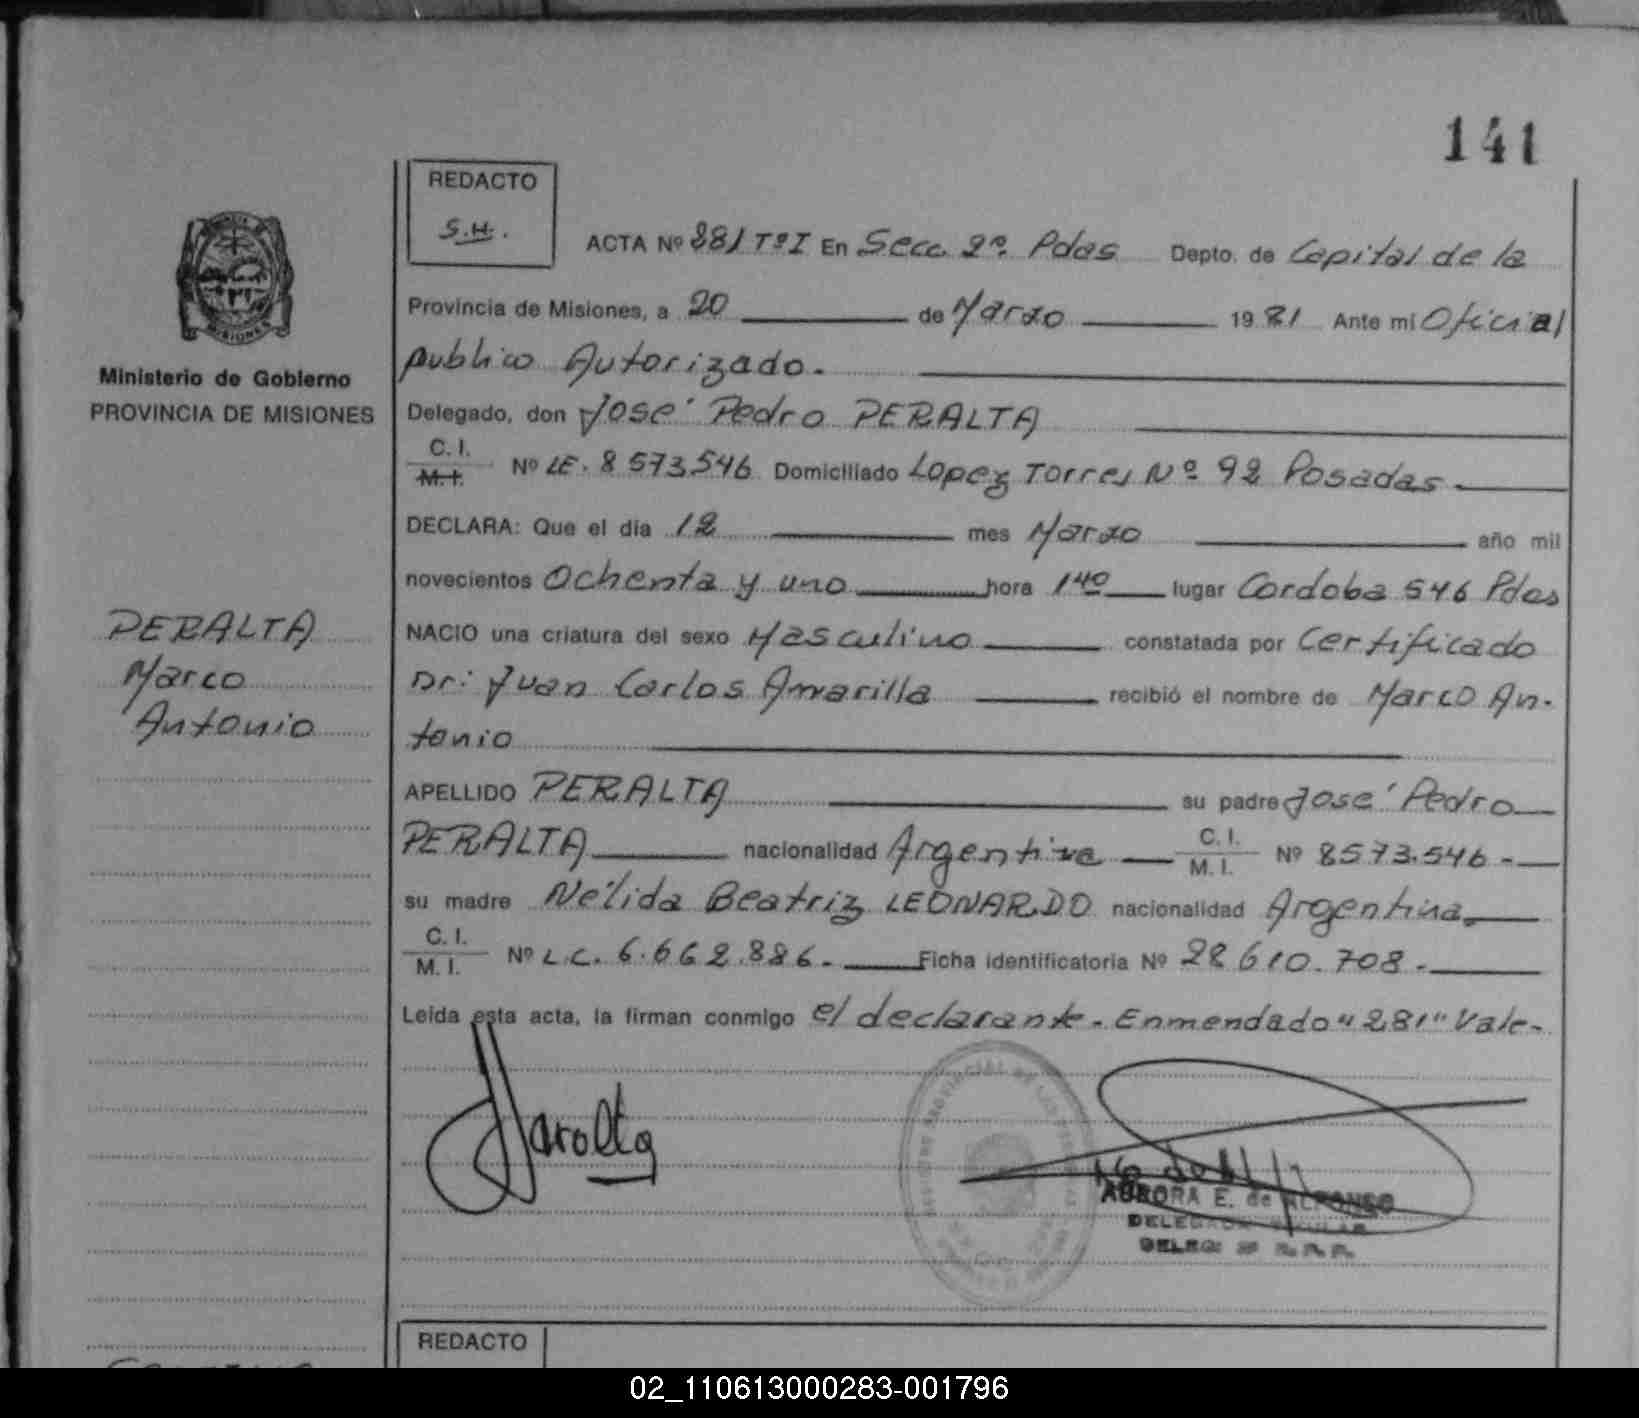 141
REDACTO
S.H.
ACTA Nº 281 TºI En Secc. 2ª. Pdas Depto. de Capital de la
Provincia de Misiones, a 20 de Marzo 1981 Ante mi Oficial
publico Autorizado.
Ministerio de Gobierno
PROVINCIA DE MISIONES
Delegado, don José Pedro PERALTA
C. I.
M. I. Nº LE. 8573.546 Domiciliado Lopez Torres Nº 92 Posadas.
DECLARA: Que el día 12 mes Marzo año mil
novecientos Ochenta y uno hora 14º lugar Cordoba 546 Pdas
PERALTA
Marco
Antonio
NACIO una criatura del sexo Masculino constatada por Certificado
Dr: Juan Carlos Amarilla recibió el nombre de Marco An-
tonio
APELLIDO PERALTA su padre José Pedro
PERALTA nacionalidad Argentina C. I. M. I. Nº 8573.546.-
su madre Nélida Beatriz LEONARDO nacionalidad Argentina.
C. I.
M. I. Nº L.C. 6.662.886.- Ficha identificatoria Nº 28610.708.-
Leída esta acta, la firman conmigo el declarante. Enmendado "281" Vale-
AURORA E. de ALFONSO
REDACTO
02_110613000283-001796